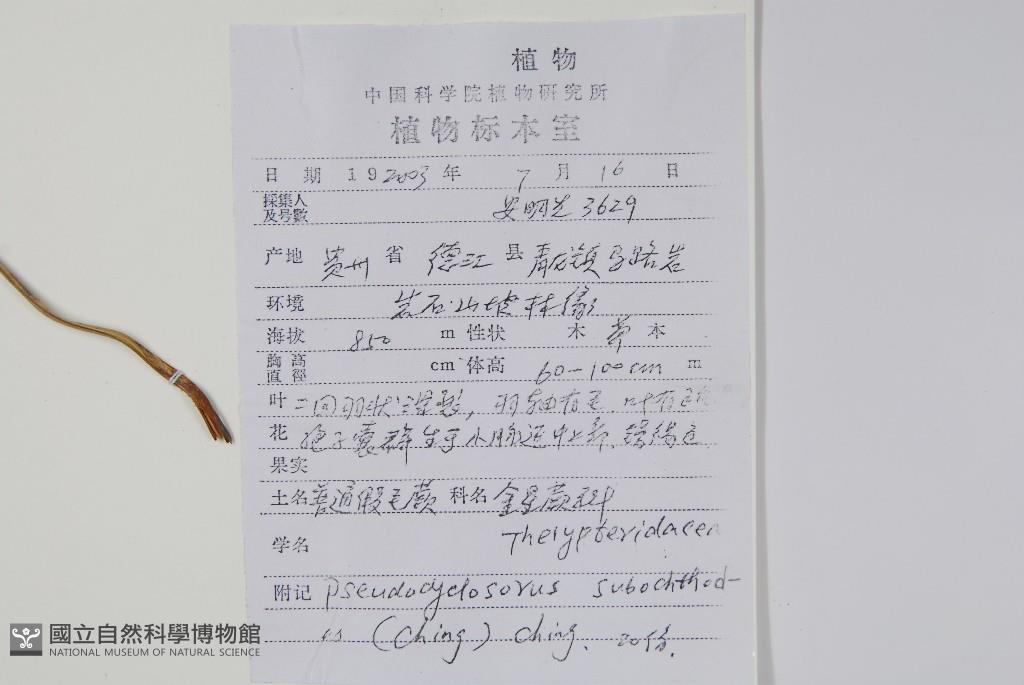 植物
中国科学院植物研究所
植物标本室
日期 19 2003 年 7 月 16 日
採集人
及号數 安明先 3629
产地 贵州 省 德江 县 青龙镇 马路岩
环境 岩石山坡林缘
海拔 850 m 性状 木 草 本
胸高
直徑 cm 体高 60-100cm m
叶 二回羽状深裂, 羽轴有毛 叶有
花 孢子囊群生于小脉近中上部
果实
土名 普通假毛蕨 科名 金星蕨科
学名 Thelypteridacea
附记 Pseudocyclosorus subochthod-
es (Ching) Ching. 20份.
國立自然科學博物館
NATIONAL MUSEUM OF NATURAL SCIENCE